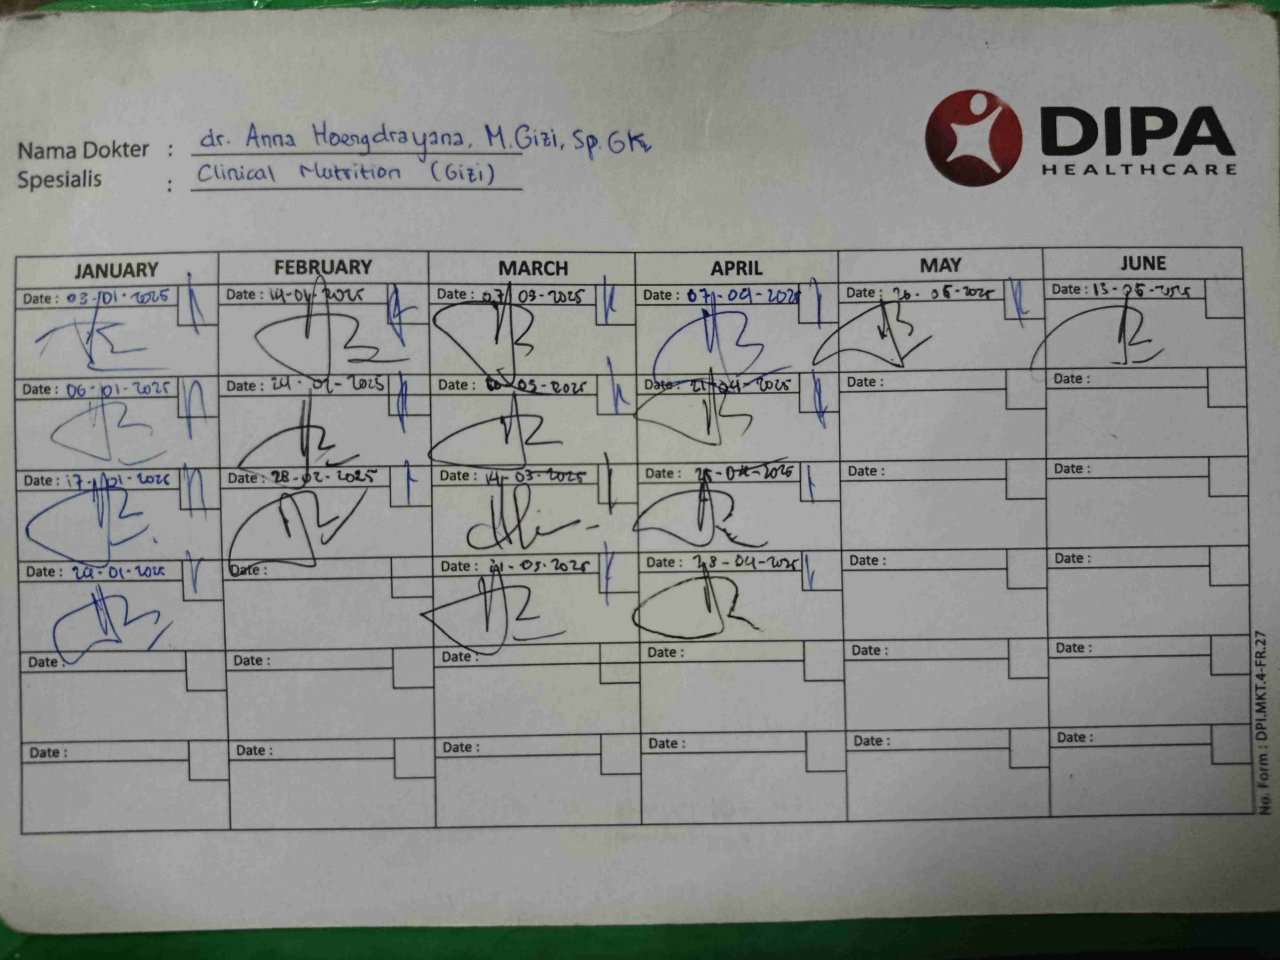 DIPA
HEALTHCARE
Nama Dokter : dr. Anna Hoengdrayana, M.Gizi, Sp.GK
Spesialis : Clinical Nutrition (Gizi)
JANUARY FEBRUARY MARCH APRIL MAY JUNE
Date : 03-01-2025 Date : 14-01-2025 Date : 07-03-2025 Date : 07-04-2025 Date : 20-05-2025 Date : 13-05-2025
Date : 06-01-2025 Date : 24-02-2025 Date : 03-2025 Date : 21-04-2025 Date : Date :
Date : 17-01-2025 Date : 28-02-2025 Date : 14-03-2025 Date : 25-04-2025 Date : Date :
Date : 20-01-2025 Date : Date : 21-03-2025 Date : 28-04-2025 Date : Date :
Date : Date : Date : Date : Date : Date :
Date : Date : Date : Date : Date : Date :
No. Form : DPI.MKT.4-FR.27